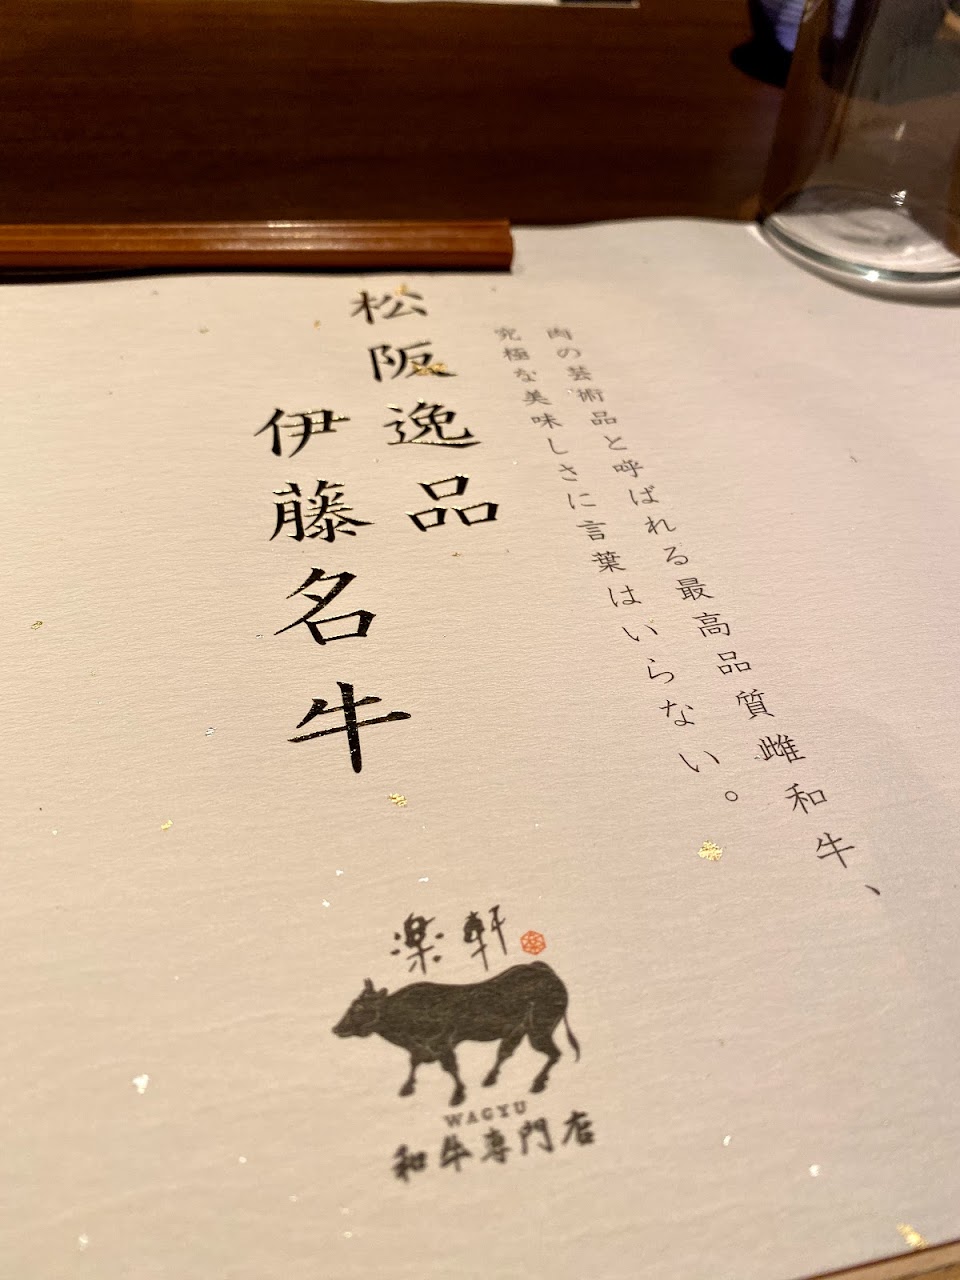 肉の芸術品と呼ばれる最高品質雌和牛、
究極な美味しさに言葉はいらない。
松阪逸品
伊藤名牛
楽軒
WAGYU
和牛専門店